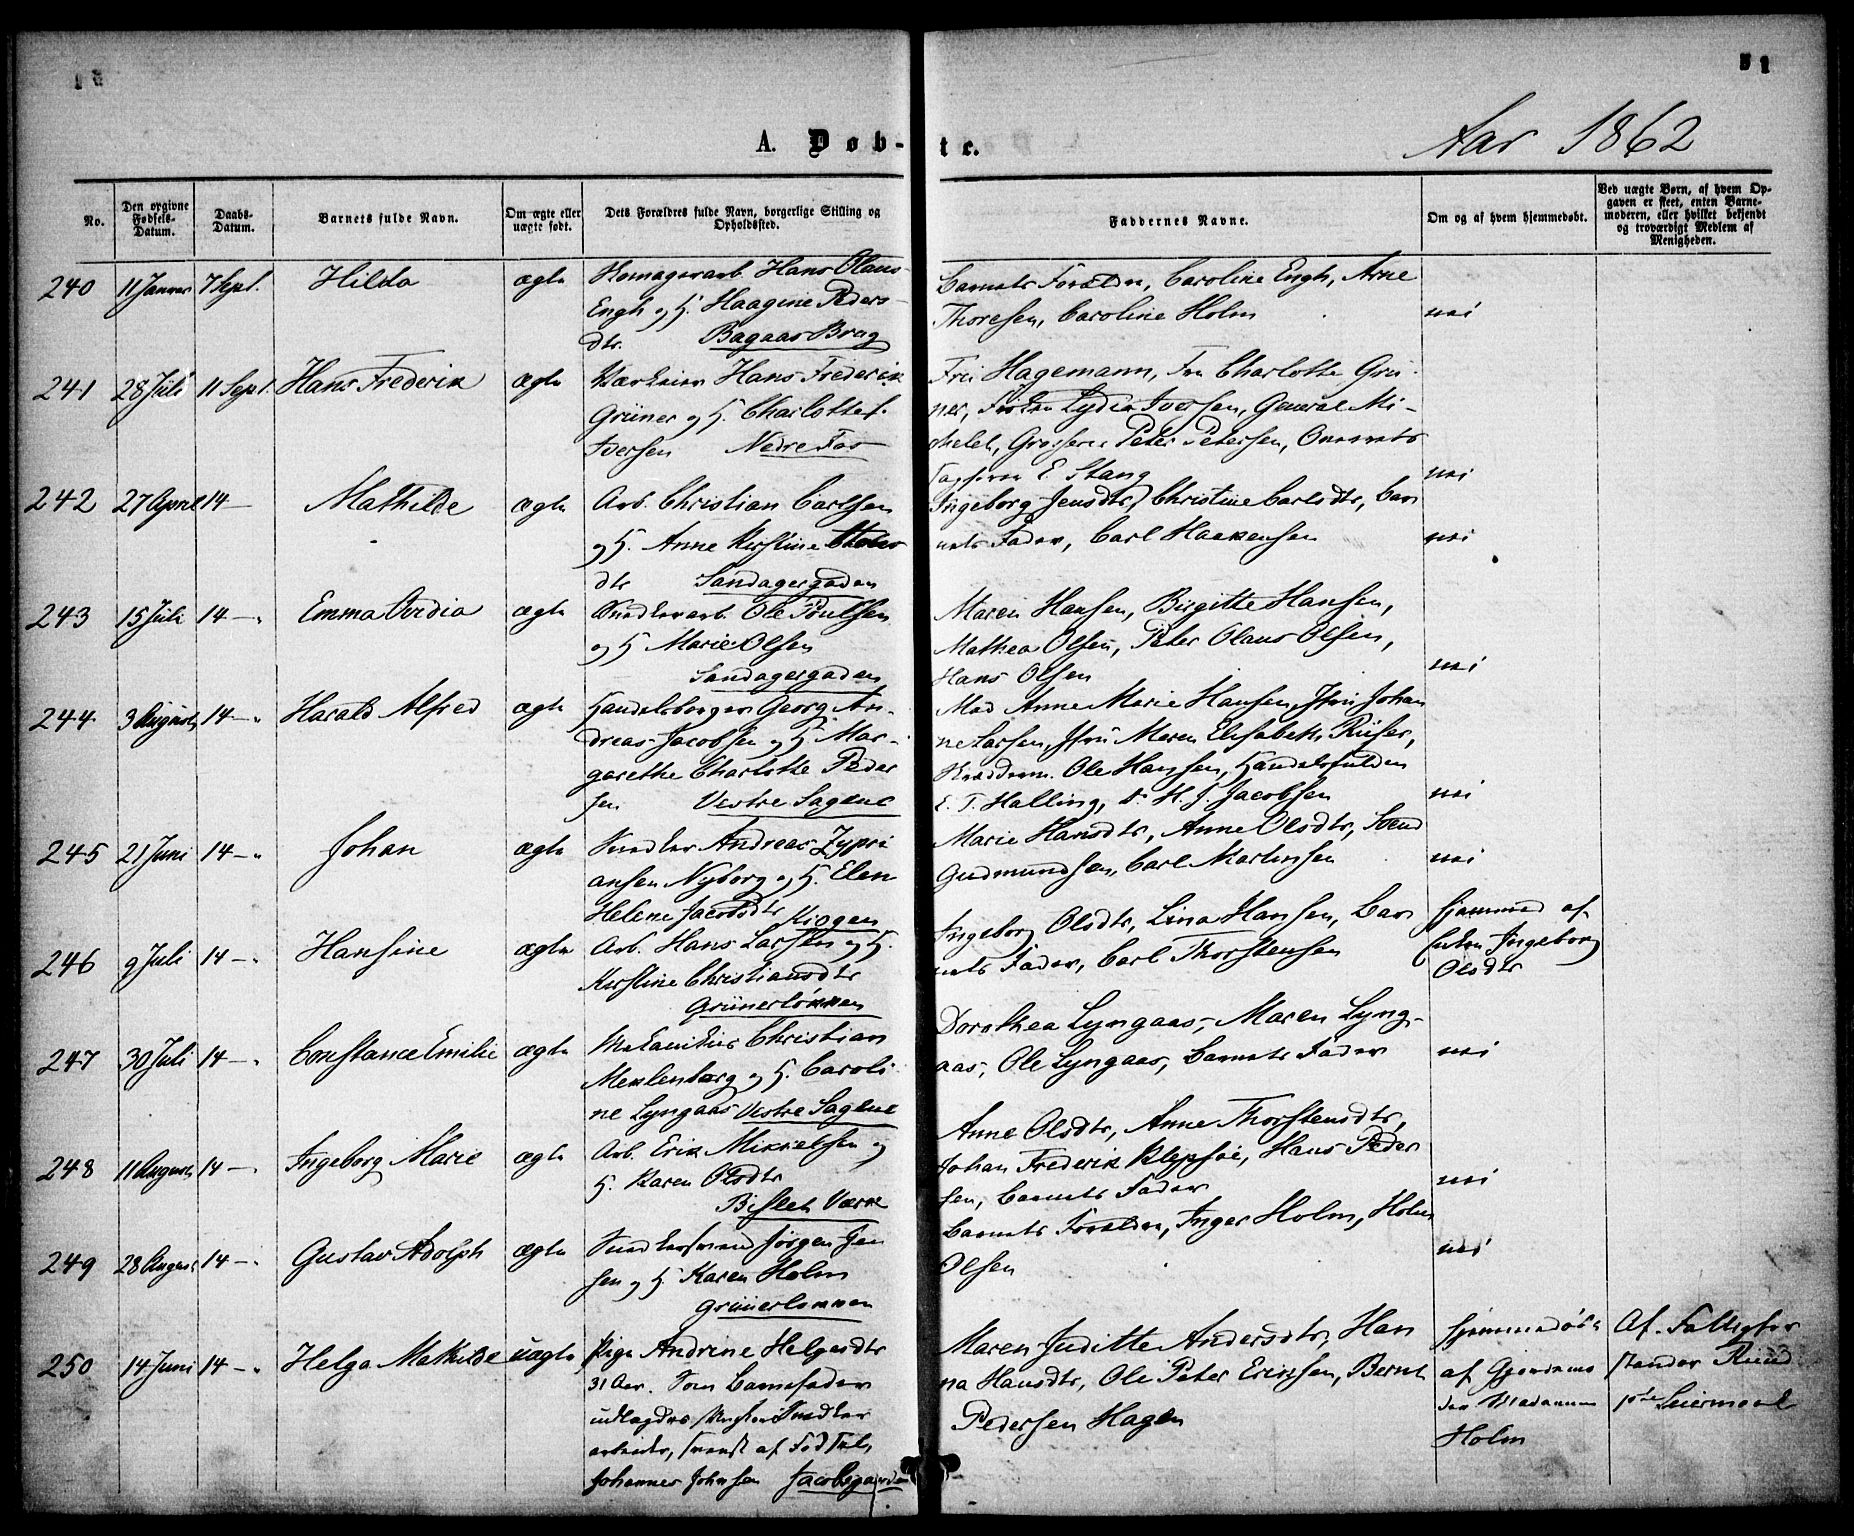 A. Døb-te.
Aar 1862
No.
Den opgivne Fødsels-Datum.
Daabs-Datum.
Barnets fulde Navn.
Om ægte eller uægte født.
Dets Forældres fulde Navn, borgerlige Stilling og Opholdssted.
Faddernes Navne.
Om og af hvem hjemmedøbt.
Ved uægte Børn, af hvem Opgaven er skeet, enten Barnemoderen, eller hvilket bekjendt og troværdigt Medlem af Menigheden.
240 11 Januar 7 Sept. Hilda ægte
Hans Olaus
Engh og H. Haagine Peders
dtr. Bagaas Brug
Barnets Forældre, Caroline Engh, Arne
Thoresen, Caroline Holm nei
241 28 Juli 11 Sept. Hans Frederik ægte
Hans Frederik
Grüner og H. Charlotte f.
Iversen Nedre Fos
Hagemann, Fru Charlotte Grü-
ner, Frøken Lydia Iversen, General Mi-
chelet, Grosserer Peter Petersen,
E. Stang nei
242 27 April 14 — Mathilde ægte
Arb. Christian Carlsen
og H. Anne Kirstine
dtr Sandagergaden
Ingeborg Jensdtr, Christine Carlsdtr, Bar
nets Fader, Carl Haakensen nei
243 15 Juli 14 —. Emma Ovidia ægte
Ole Poulsen
og H Marie Olsen
Sandagergaden
Maren Hansen, Birgitte Hansen,
Mathea Olsen, Peter Olaus Olsen,
Hans Olsen nei
244. 3 August 14 —. Harald Alfred ægte
Handelsborger Georg An-
dreas Jacobsen og H. Mar-
garethe Charlotte Peder
sen Vestre Sagene
Mad Anne Marie Hansen, Jfru Johan
ne Larsen, Jfru Maren Elisabeth
Ole Hansen, Handelsfuldm
E. T. Halling, Jacobsen nei
245 21 Juni 14 —. Johan ægte
Snedker Andreas Zypri
ansen Nyborg og H. Elen
Helene Jacobsdtr Kiøgen
Marie Hansdtr, Anne Olsdtr, Svend
Gudmundsen, Carl Martinsen nei
246 9 Juli 14 —. Hansine ægte
Arb. Hans Larsen og H.
Kirstine Christiansdtr
Grünerløkken
Ingeborg Olsdtr, Lina Hansen, Bar
nets Fader, Carl Thorstensen
af
Ingeborg
Olsdtr
247 30 Juli 14 —. Constance Emilie ægte
Christian
Meklenborg og H. Caroli
ne Lyngaas Vestre Sagene
Dorothea Lyngaas, Maren Lyng-
aas, Ole Lyngaas, Barnets Fader nei
248 11 August 14 —. Ingeborg Marie ægte
Arb. Erik Mikkelsen og
H. Karen Olsdtr
Bislet Værk
Anne Olsdtr, Anne Thorstensdtr,
Johan Frederik Klepsøe, Hans Peder
sen, Barnets Fader nei
249 28 August 14 —. Gustav Adolph ægte
Jørgen Jen
sen og H. Karen Holm
Grünerløkken
Barnets Forældre, Inger Holm,
Olsen nei
250 14 Juni 14 —. Helga Mathilde uægte
Pige Andrine Helgesdtr
31 Aar. Som Barnefader
udlagdes Snedker
arbeider,
Johannes Johnsen Jacobsgaarden
Maren Juditte Andersdtr, Han
na Hansdtr, Ole Peter Ericksen, Bernt
Pedersen Hagen
hjemmedøbt
af Gjordemo
der Madamme
Holm
Af Fattigfor
stander Ruud
1ste Leiermaal